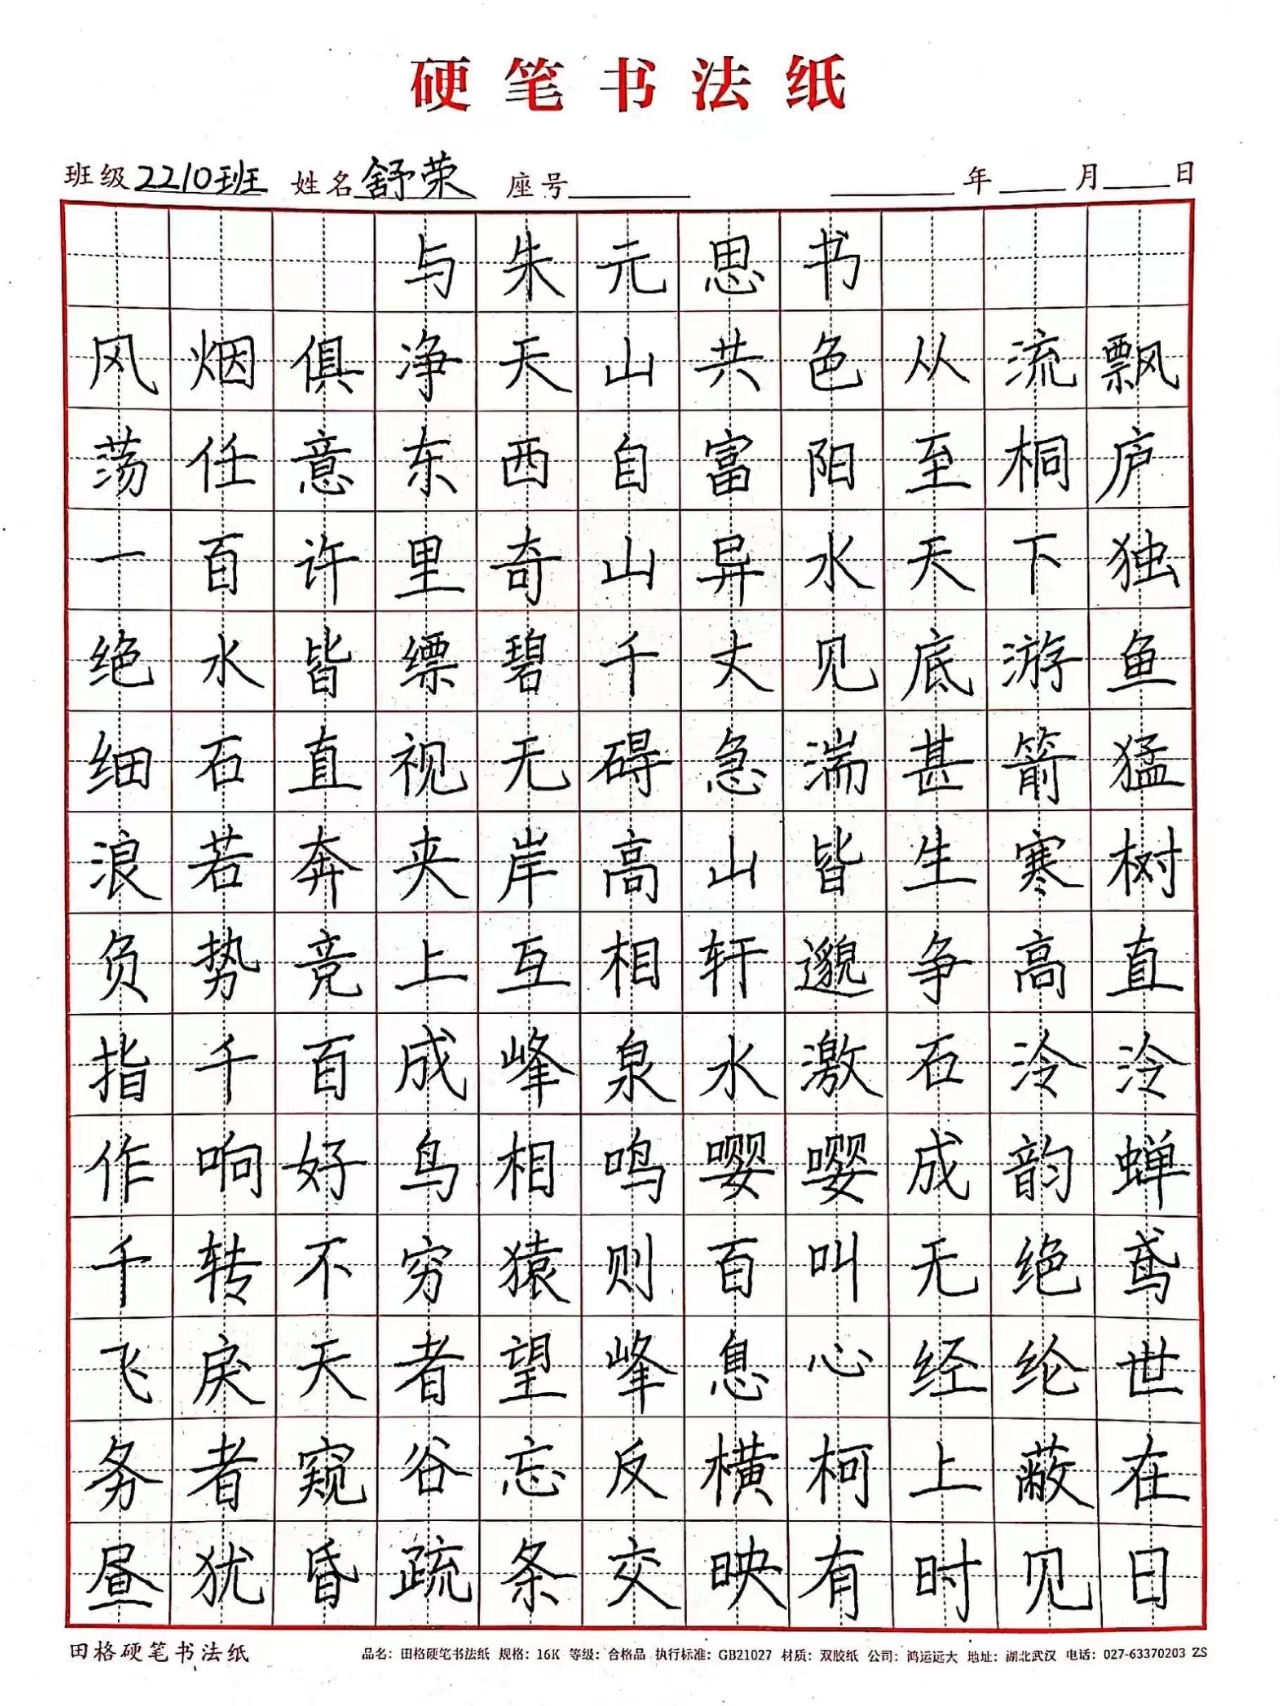 硬笔书法纸
班级2210班 姓名舒荣 座号 年 月 日
与朱元思书
风烟俱净天山共色从流飘
荡任意东西自富阳至桐庐
一百许里奇山异水天下独
绝水皆缥碧千丈见底游鱼
细石直视无碍急湍甚箭猛
浪若奔夹岸高山皆生寒树
负势竞上互相轩邈争高直
指千百成峰泉水激石泠泠
作响好鸟相鸣嘤嘤成韵蝉
千转不穷猿则百叫无绝鸢
飞戾天者望峰息心经纶世
务者窥谷忘反横柯上蔽在
昼犹昏疏条交映有时见日
田格硬笔书法纸 品名：田格硬笔书法纸 规格：16K 等级：合格品 执行标准：GB21027 材质：双胶纸 公司：鸿运远大 地址：湖北武汉 电话：027-63370203 ZS